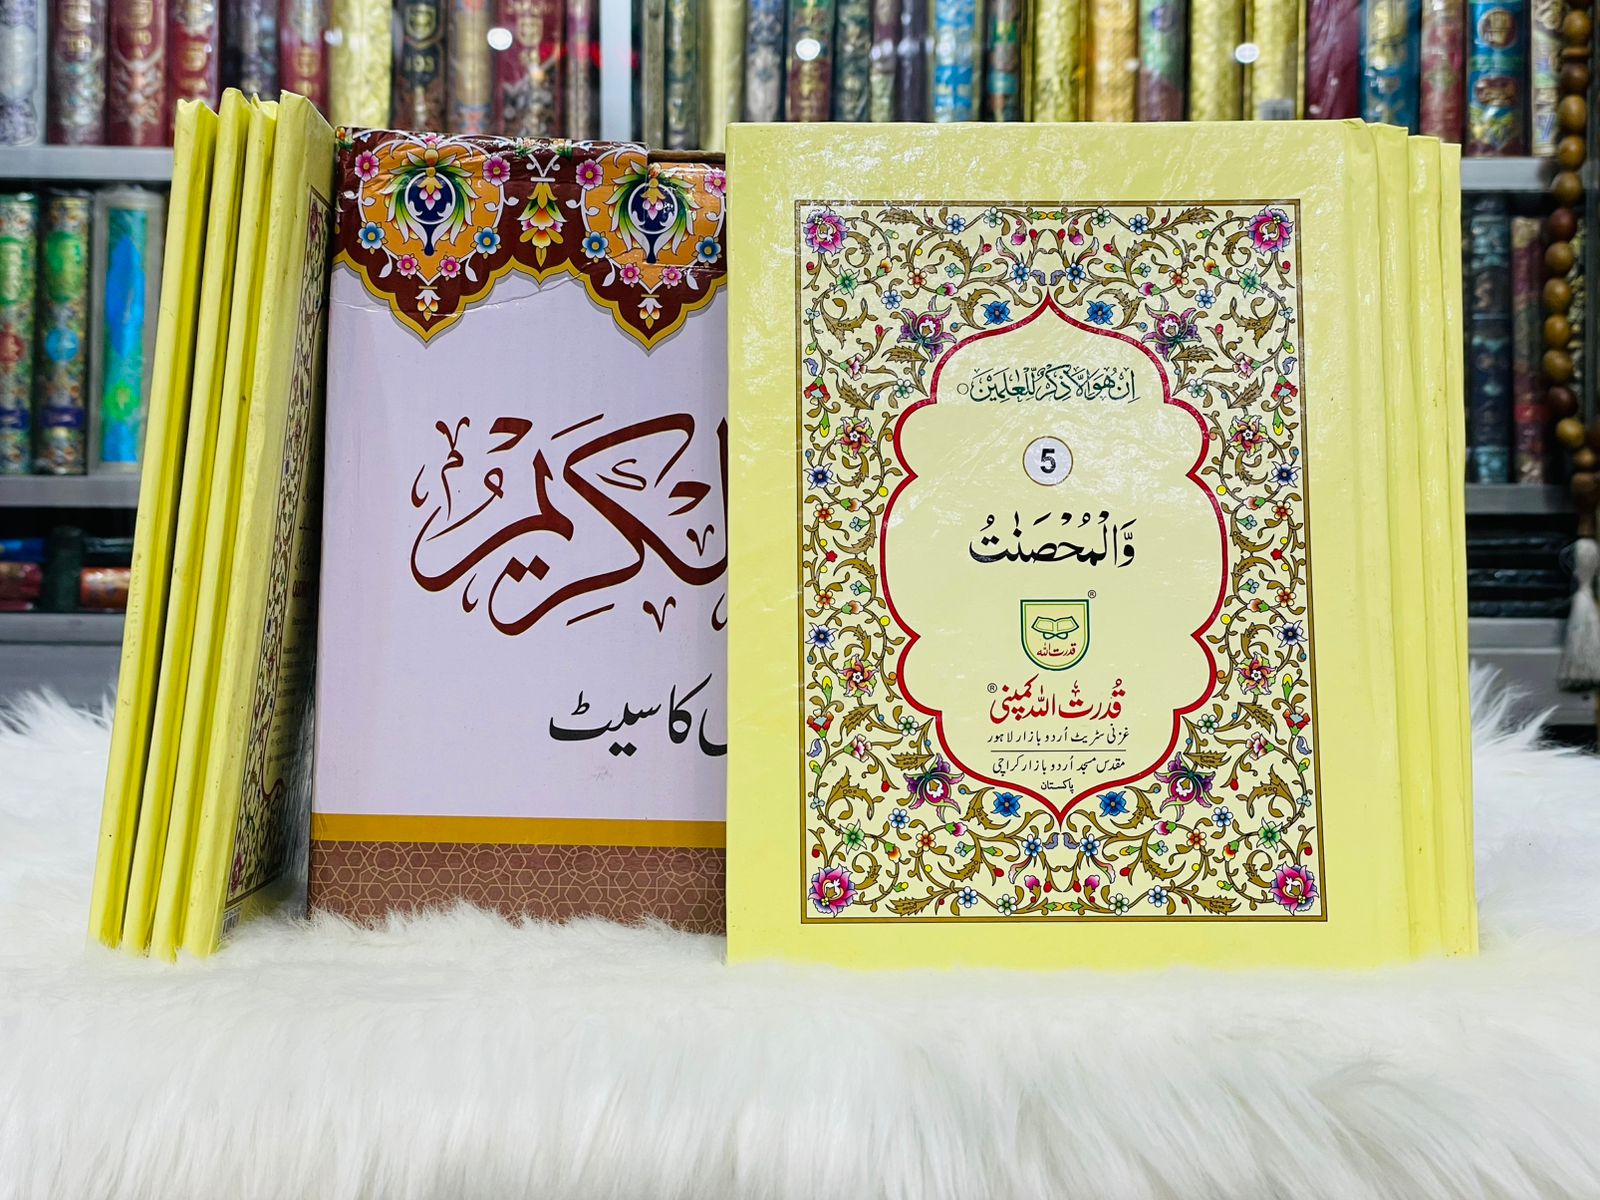 الكريم
کا سیٹ
اِنْ هُوَ اِلَّا ذِكْرٌ لِّلْعٰلَمِيْنَ
5
وَّالْمُحْصَنٰتُ
®
قدرت اللہ
قُدرت اللہ کمپنی ®
غزنی سٹریٹ اُردو بازار لاہور
مقدس مسجد اُردو بازار کراچی
پاکستان